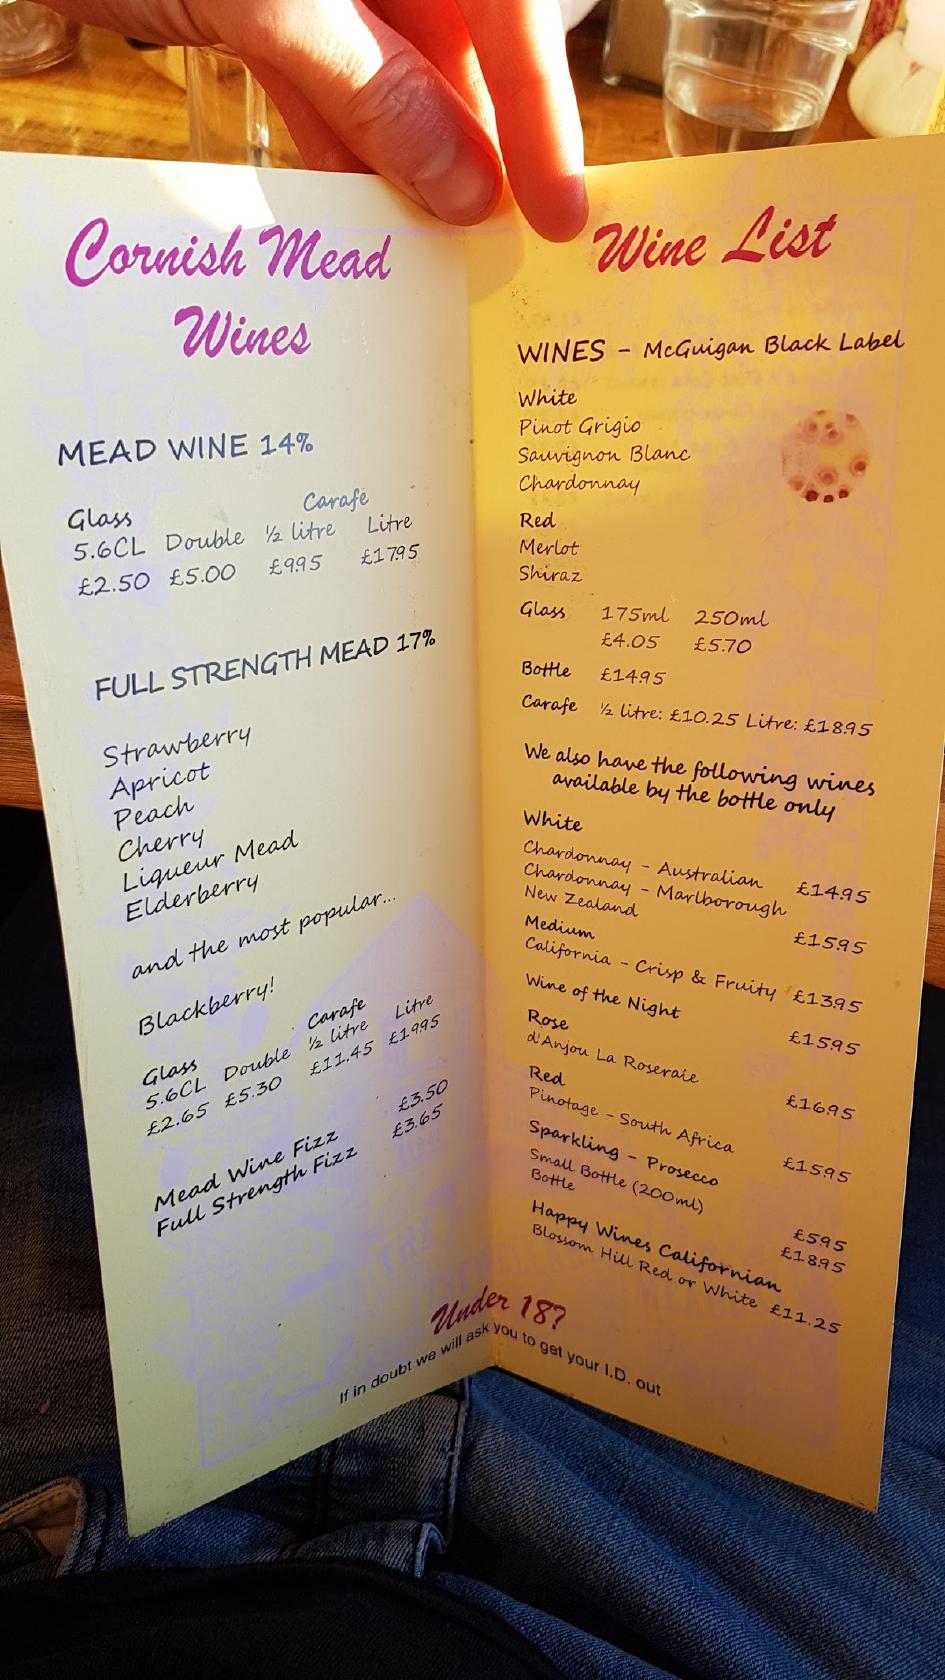 Cornish Mead
Wines
MEAD WINE 14%
Carafe
Glass
5.6CL Double ½ litre Litre
£2.50 £5.00 £9.95 £17.95
FULL STRENGTH MEAD 17%
Strawberry
Apricot
Peach
Cherry
Liqueur Mead
Elderberry
and the most popular...
Blackberry!
Carafe
Glass
5.6CL Double ½ litre Litre
£2.65 £5.30 £11.45 £19.95
Mead Wine Fizz £3.50
Full Strength Fizz £3.65
Wine List
WINES - McGuigan Black Label
White
Pinot Grigio
Sauvignon Blanc
Chardonnay
Red
Merlot
Shiraz
Glass 175ml 250ml
£4.05 £5.70
Bottle £14.95
Carafe ½ litre: £10.25 Litre: £18.95
We also have the following wines
available by the bottle only
White
Chardonnay - Australian £14.95
Chardonnay - Marlborough
New Zealand £15.95
Medium
California - Crisp & Fruity £13.95
Wine of the Night £15.95
Rose
d'Anjou La Roseraie £16.95
Red
Pinotage - South Africa £15.95
Sparkling - Prosecco
Small Bottle (200ml) £5.95
Bottle £18.95
Happy Wines Californian
Blossom Hill Red or White £11.25
Under 18?
If in doubt we will ask you to get your I.D. out